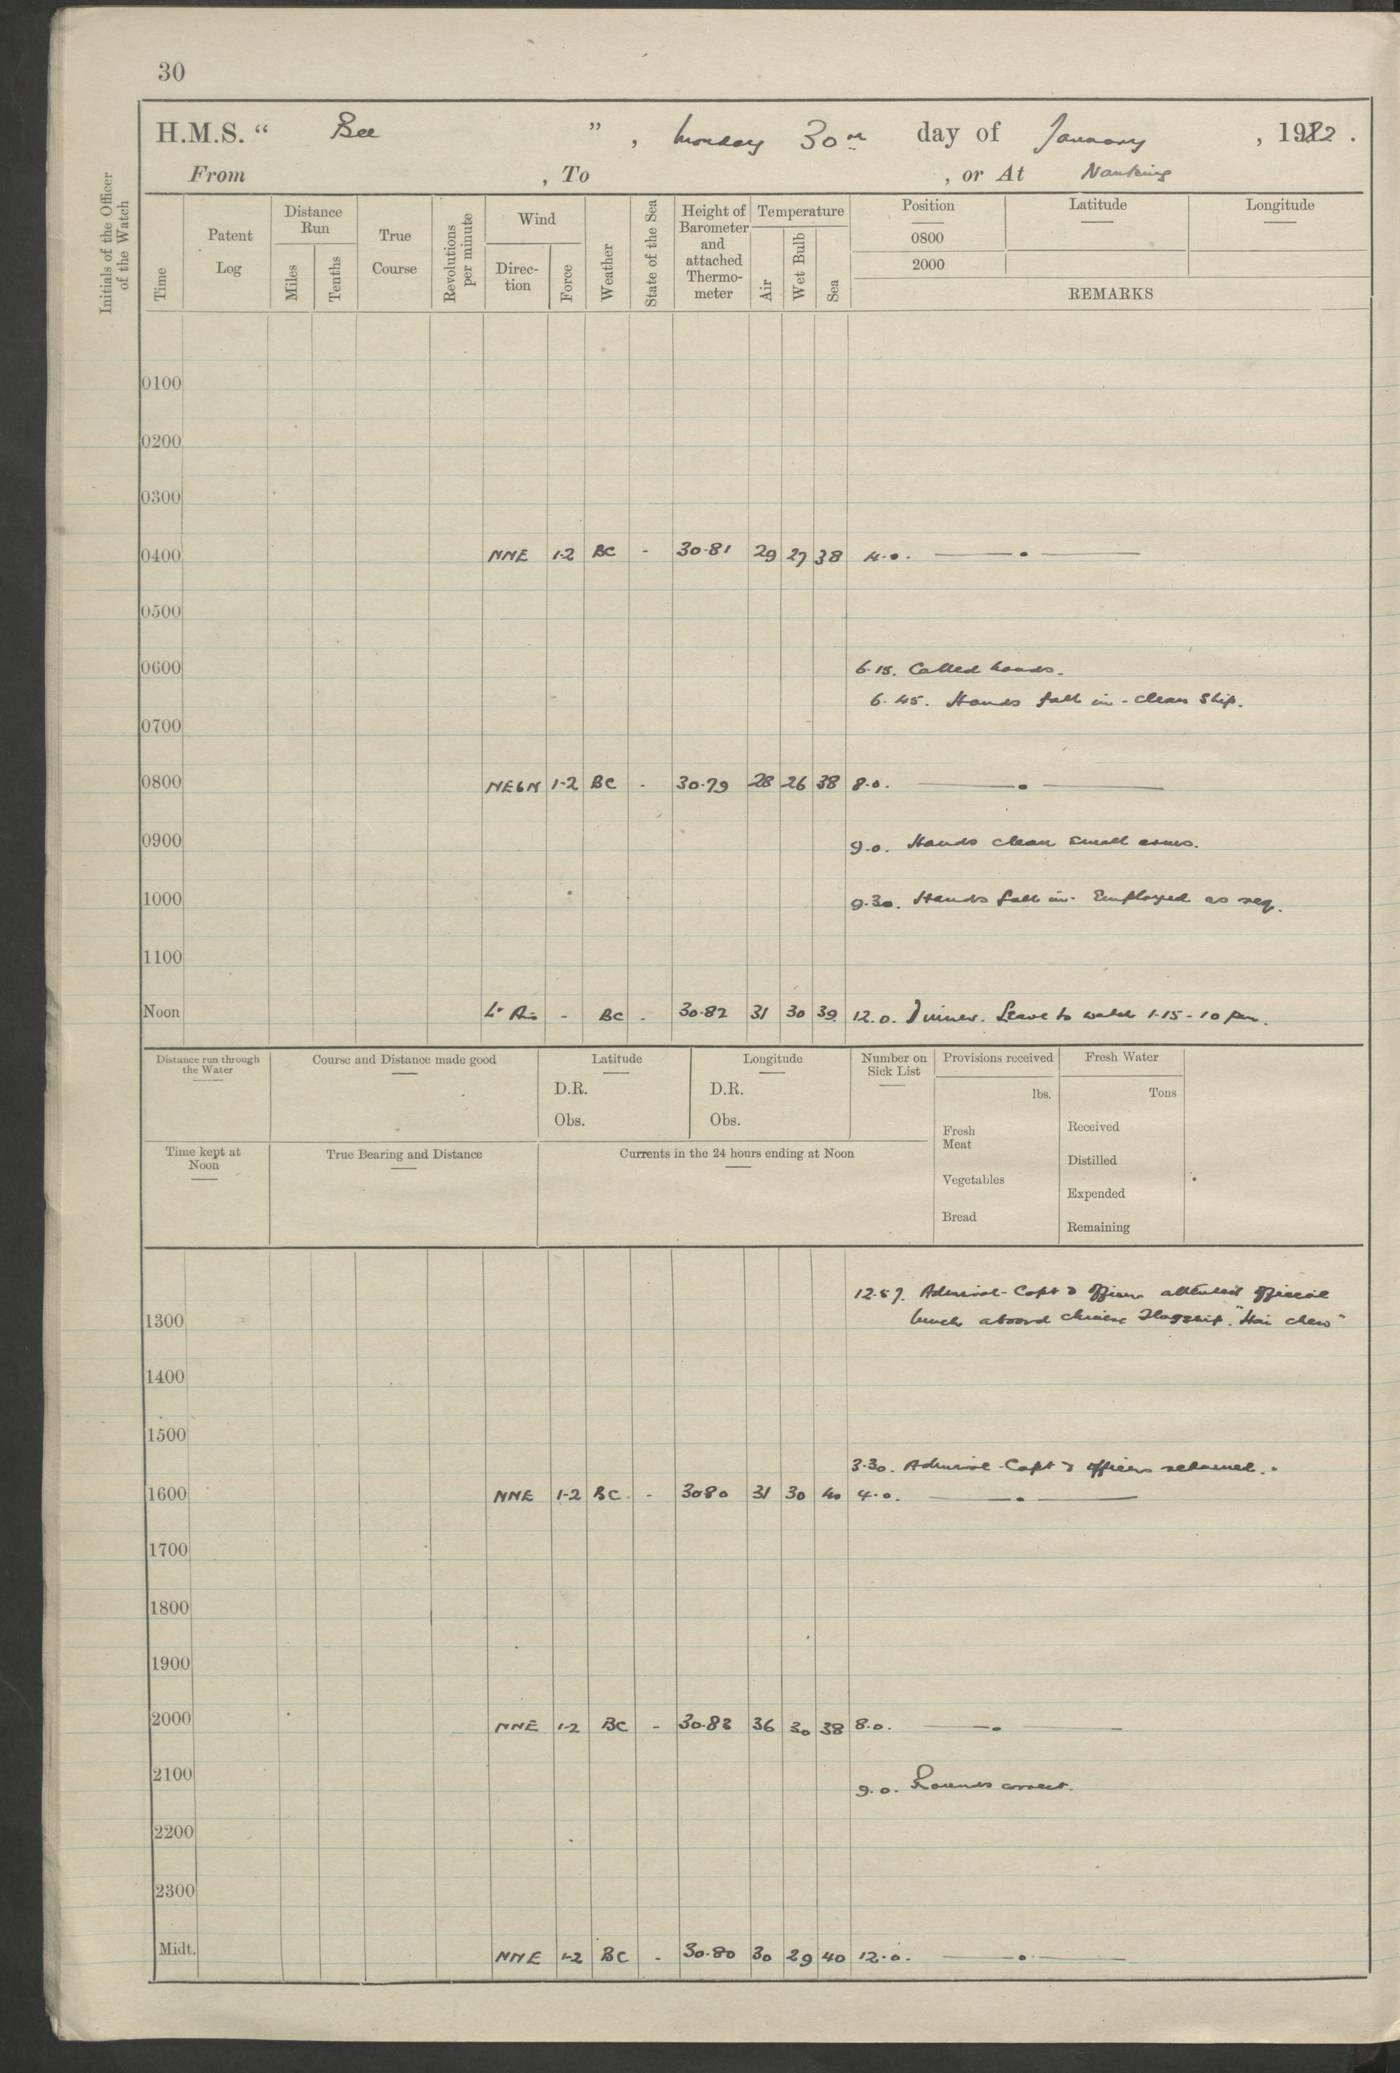 30
H.M.S. “ Bee ” , Monday 30th day of January , 1922 .
From , To , or At Nanking
Initials of the Officer of the Watch
Time
Patent Log
Distance Run
Miles
Tenths
True Course
Revolutions per minute
Wind
Direc- tion
Force
Weather
State of the Sea
Height of Barometer and attached Thermo- meter
Temperature
Air
Wet Bulb
Sea
Position
0800
2000
Latitude
Longitude
REMARKS
0100
0200
0300
0400 NNE 1-2 BC - 30.81 29 27 38 4.0.
0500
0600 6.15. Called hands.
6.45. Hands fall in - clean ship.
0700
0800 NEbN 1-2 BC - 30.79 28 26 38 8.0.
0900 9.0. Hands clean small arms.
1000 9.30. Hands fall in. Employed as req.
1100
Noon Lt Air - BC - 30.82 31 30 39 12.0. Dinner. Leave to watch 1.15 - 10 pm.
Distance run through the Water
Course and Distance made good
Latitude
D.R.
Obs.
Longitude
D.R.
Obs.
Number on Sick List
Provisions received
lbs.
Fresh Meat
Vegetables
Bread
Fresh Water
Tons
Received
Distilled
Expended
Remaining
Time kept at Noon
True Bearing and Distance
Currents in the 24 hours ending at Noon
12.57. Admiral - Capt & Officers attended official
1300 lunch aboard Chinese Flagship. "Hai
1400
1500
3.30. Admiral - Capt & officers returned.
1600 NNE 1-2 BC. - 3080 31 30 40 4.0.
1700
1800
1900
2000 NNE 1-2 BC - 30.83 36 30 38 8.0.
2100 9.0. Rounds correct.
2200
2300
Midt. NNE 1-2 BC - 30.80 30 29 40 12.0.